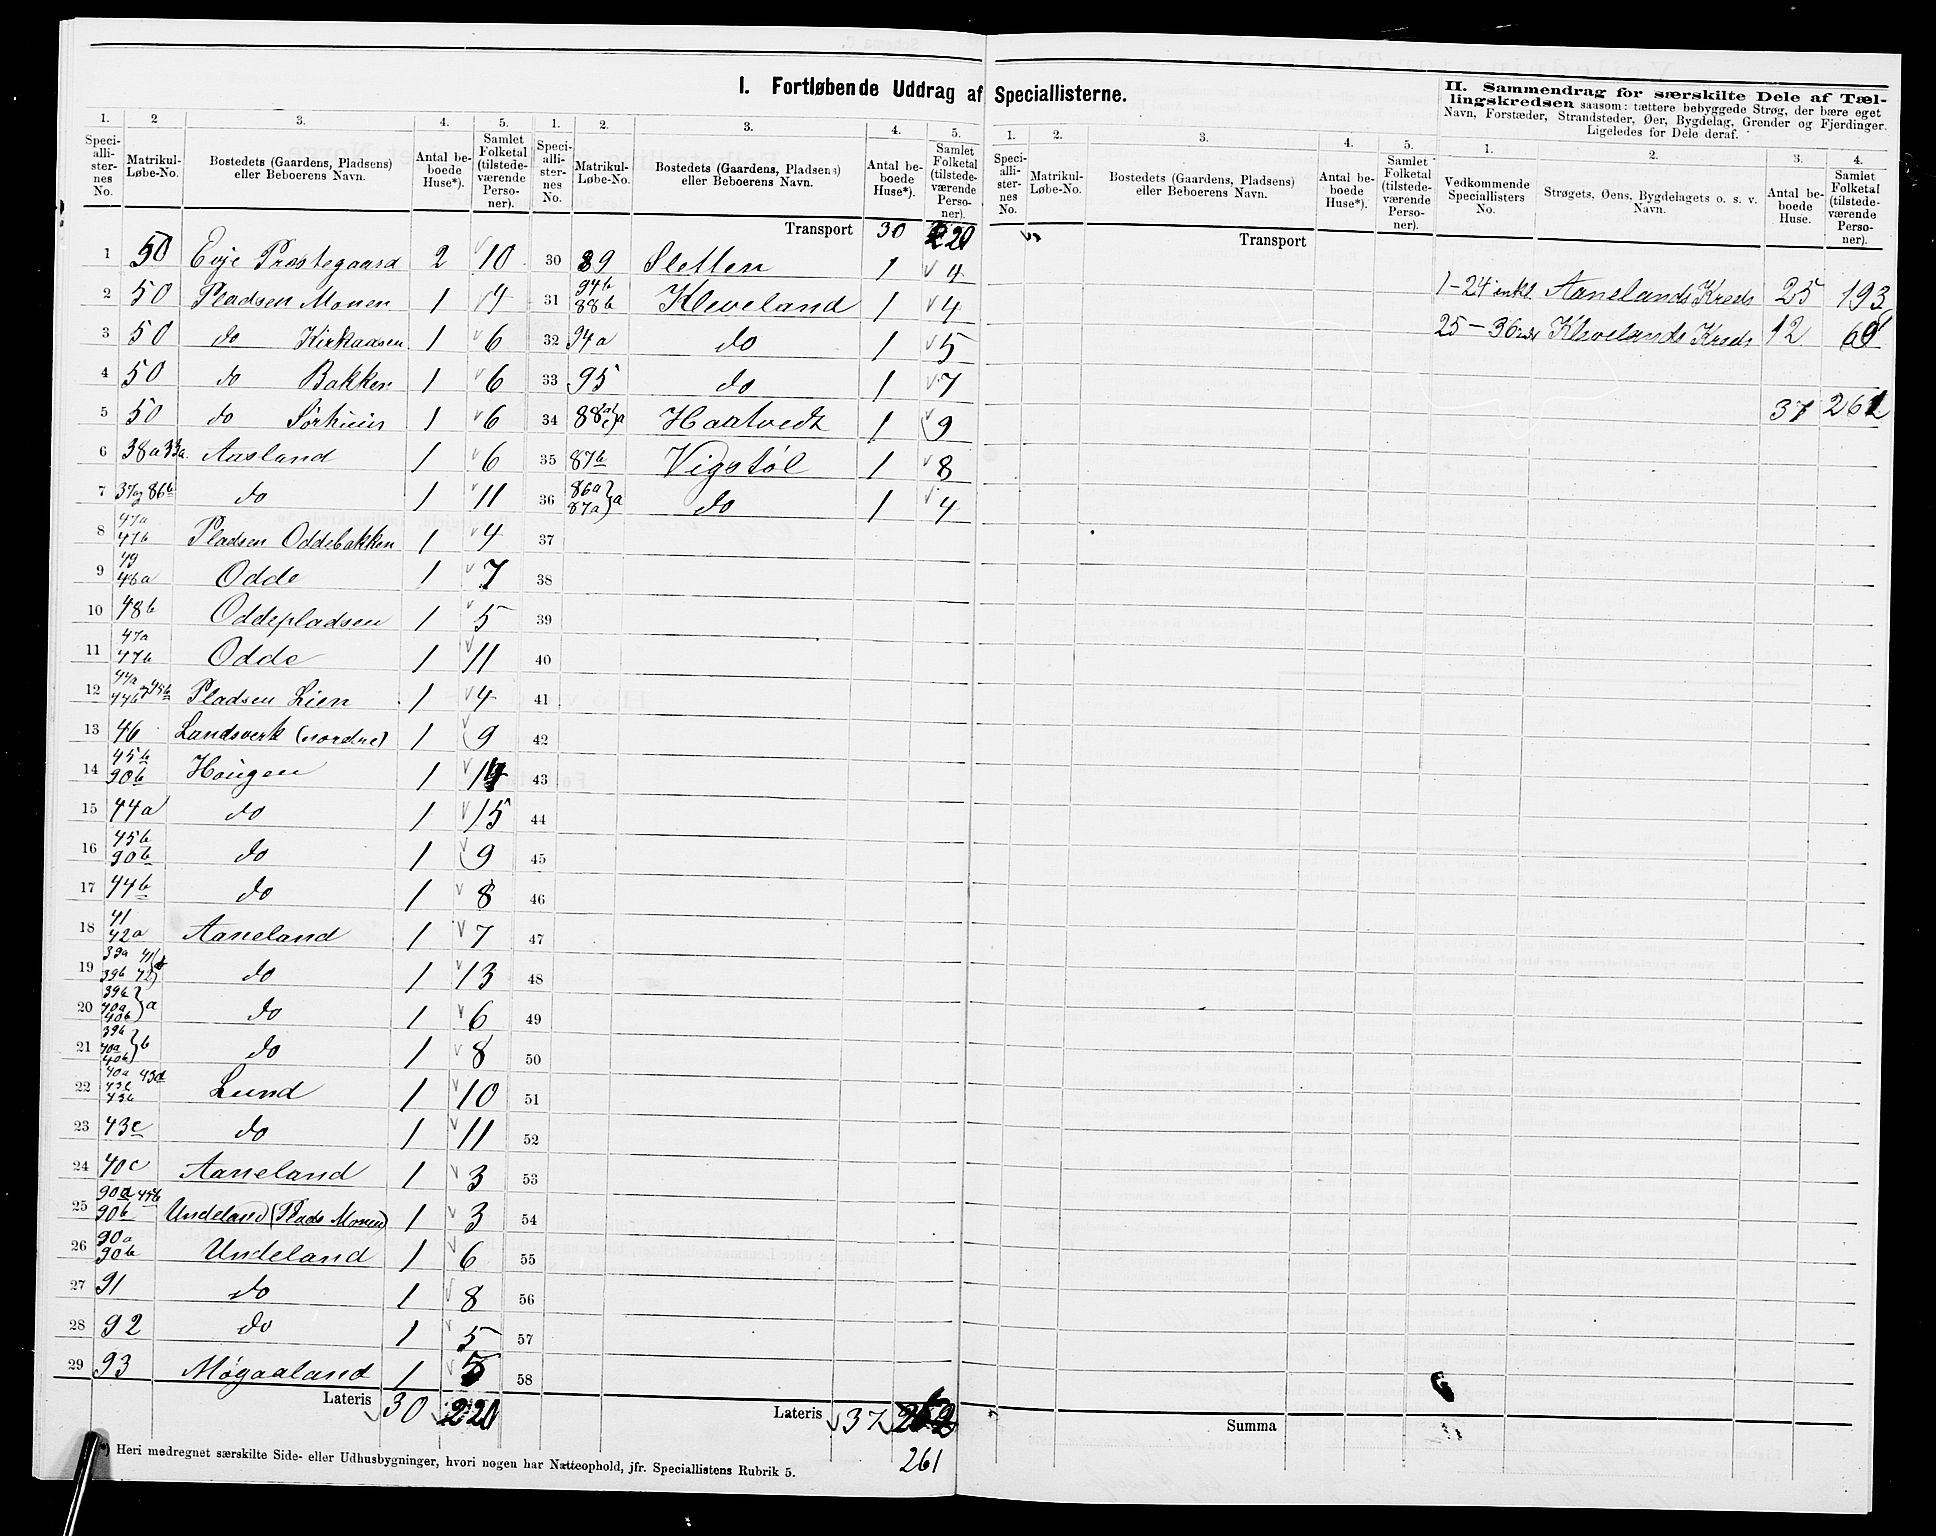 I. Fortløbende Uddrag af Speciallisterne.
1. 2 3. 4. 5.
Speciallisternes No. Matrikul-Løbe-No. Bostedets (Gaardens, Pladsens) eller Beboerens Navn. Antal beboede Huse*). Samlet Folketal (tilstedeværende Personer).
1 50 Evje Præstegaard 2 10
2 50 Pladsen Monen 1 4
3 50 do Kirkaasen 1 6
4 50 do Bakken 1 6
5 50 do Sørhuus 1 6
6 38a 33a Aasland 1 6
7 37 og 86b do 1 11
8 47a 47b Pladsen Oddebakken 1 4
9 49 48a Odde 1 7
10 48b Oddepladsen 1 5
11 47a 47b Odde 1 11
12 44a 44b 45b Pladsen Lien 1 4
13 46 Landsverk (nordre) 1 9
14 45b 90b Haugen 1
15 44a do 1 15
16 45b 90b do 1 9
17 44b do 1 8
18 41 42a Aaneland 1 7
19 39a 41 39b 42 do 1 13
20 39b 40a 40b } a do 1 6
21 39b 40a 40b } b do 1 8
22 40a 43d 43b Lund 1 10
23 43c do 1 11
24 40c Aaneland 1 3
25 90d 45b 90b Undeland (Plads Monen) 1 3
26 90a 90b Undeland 1 6
27 91 do 1 8
28 92 do 1 5
29 93 Møgaaland 1 5
Lateris 30 220
*) Heri medregnet særskilte Side- eller Udhusbygninger, hvori nogen har Natteophold, jfr. Speciallistens Rubrik 5.
1. 2. 3. 4. 5.
Speciallisternes No. Matrikul-Løbe-No. Bostedets (Gaardens, Pladsens) eller Beboerens Navn. Antal beboede Huse*). Samlet Folketal (tilstedeværende Personer).
Transport 30 220
30 89 Sletten 1 4
31 94b 88b Kleveland 1 4
32 94a do 1 5
33 95 do 1 7
34 88 a Haatvedt 1 9
35 87b Vigstøl 1 8
36 86a 87a } a do 1 4
37
38
39
40
41
42
43
44
45
46
47
48
49
50
51
52
53
54
55
56
57
58
Lateris 37
261
1. 2. 3. 4. 5.
Speciallisternes No. Matrikul-Løbe-No. Bostedets (Gaardens, Pladsens) eller Beboerens Navn. Antal beboede Huse*). Samlet Folketal (tilstedeværende Personer).
Transport
Summa
II. Sammendrag for særskilte Dele af Tællingskredsen saasom: tættere bebyggede Strøg, der bære eget Navn, Forstæder, Strandsteder, Øer, Bygdelag, Grender og Fjerdinger. Ligeledes for Dele deraf.
1. 2. 3. 4.
Vedkommende Speciallisters No. Strøgets, Øens, Bygdelagets o. s. v. Navn. Antal beboede Huse. Samlet Folketal (tilstedeværende Personer).
1-24 inkl. Aanelands Kreds 25 193
25-36 Klevelands Kreds 12
37 261